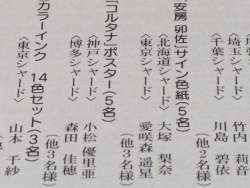 埼玉シャード〉 竹内
千葉シャード〉 川島 碧依
(他2名様)
安房 卯佐 サイン色紙(5名)
〈北海道シャード〉 大塚 梨奈
〈東京シャード〉 愛咲森 遥星
(他3名様)
コルタナ」ポスター(5名)
〈神戸シャード〉 小松 優里亜
〈博多シャード〉 森田 佳穂
(他3名様)
カラーインク 14色セット(3名)
〈東京シャード〉 山本 千紗